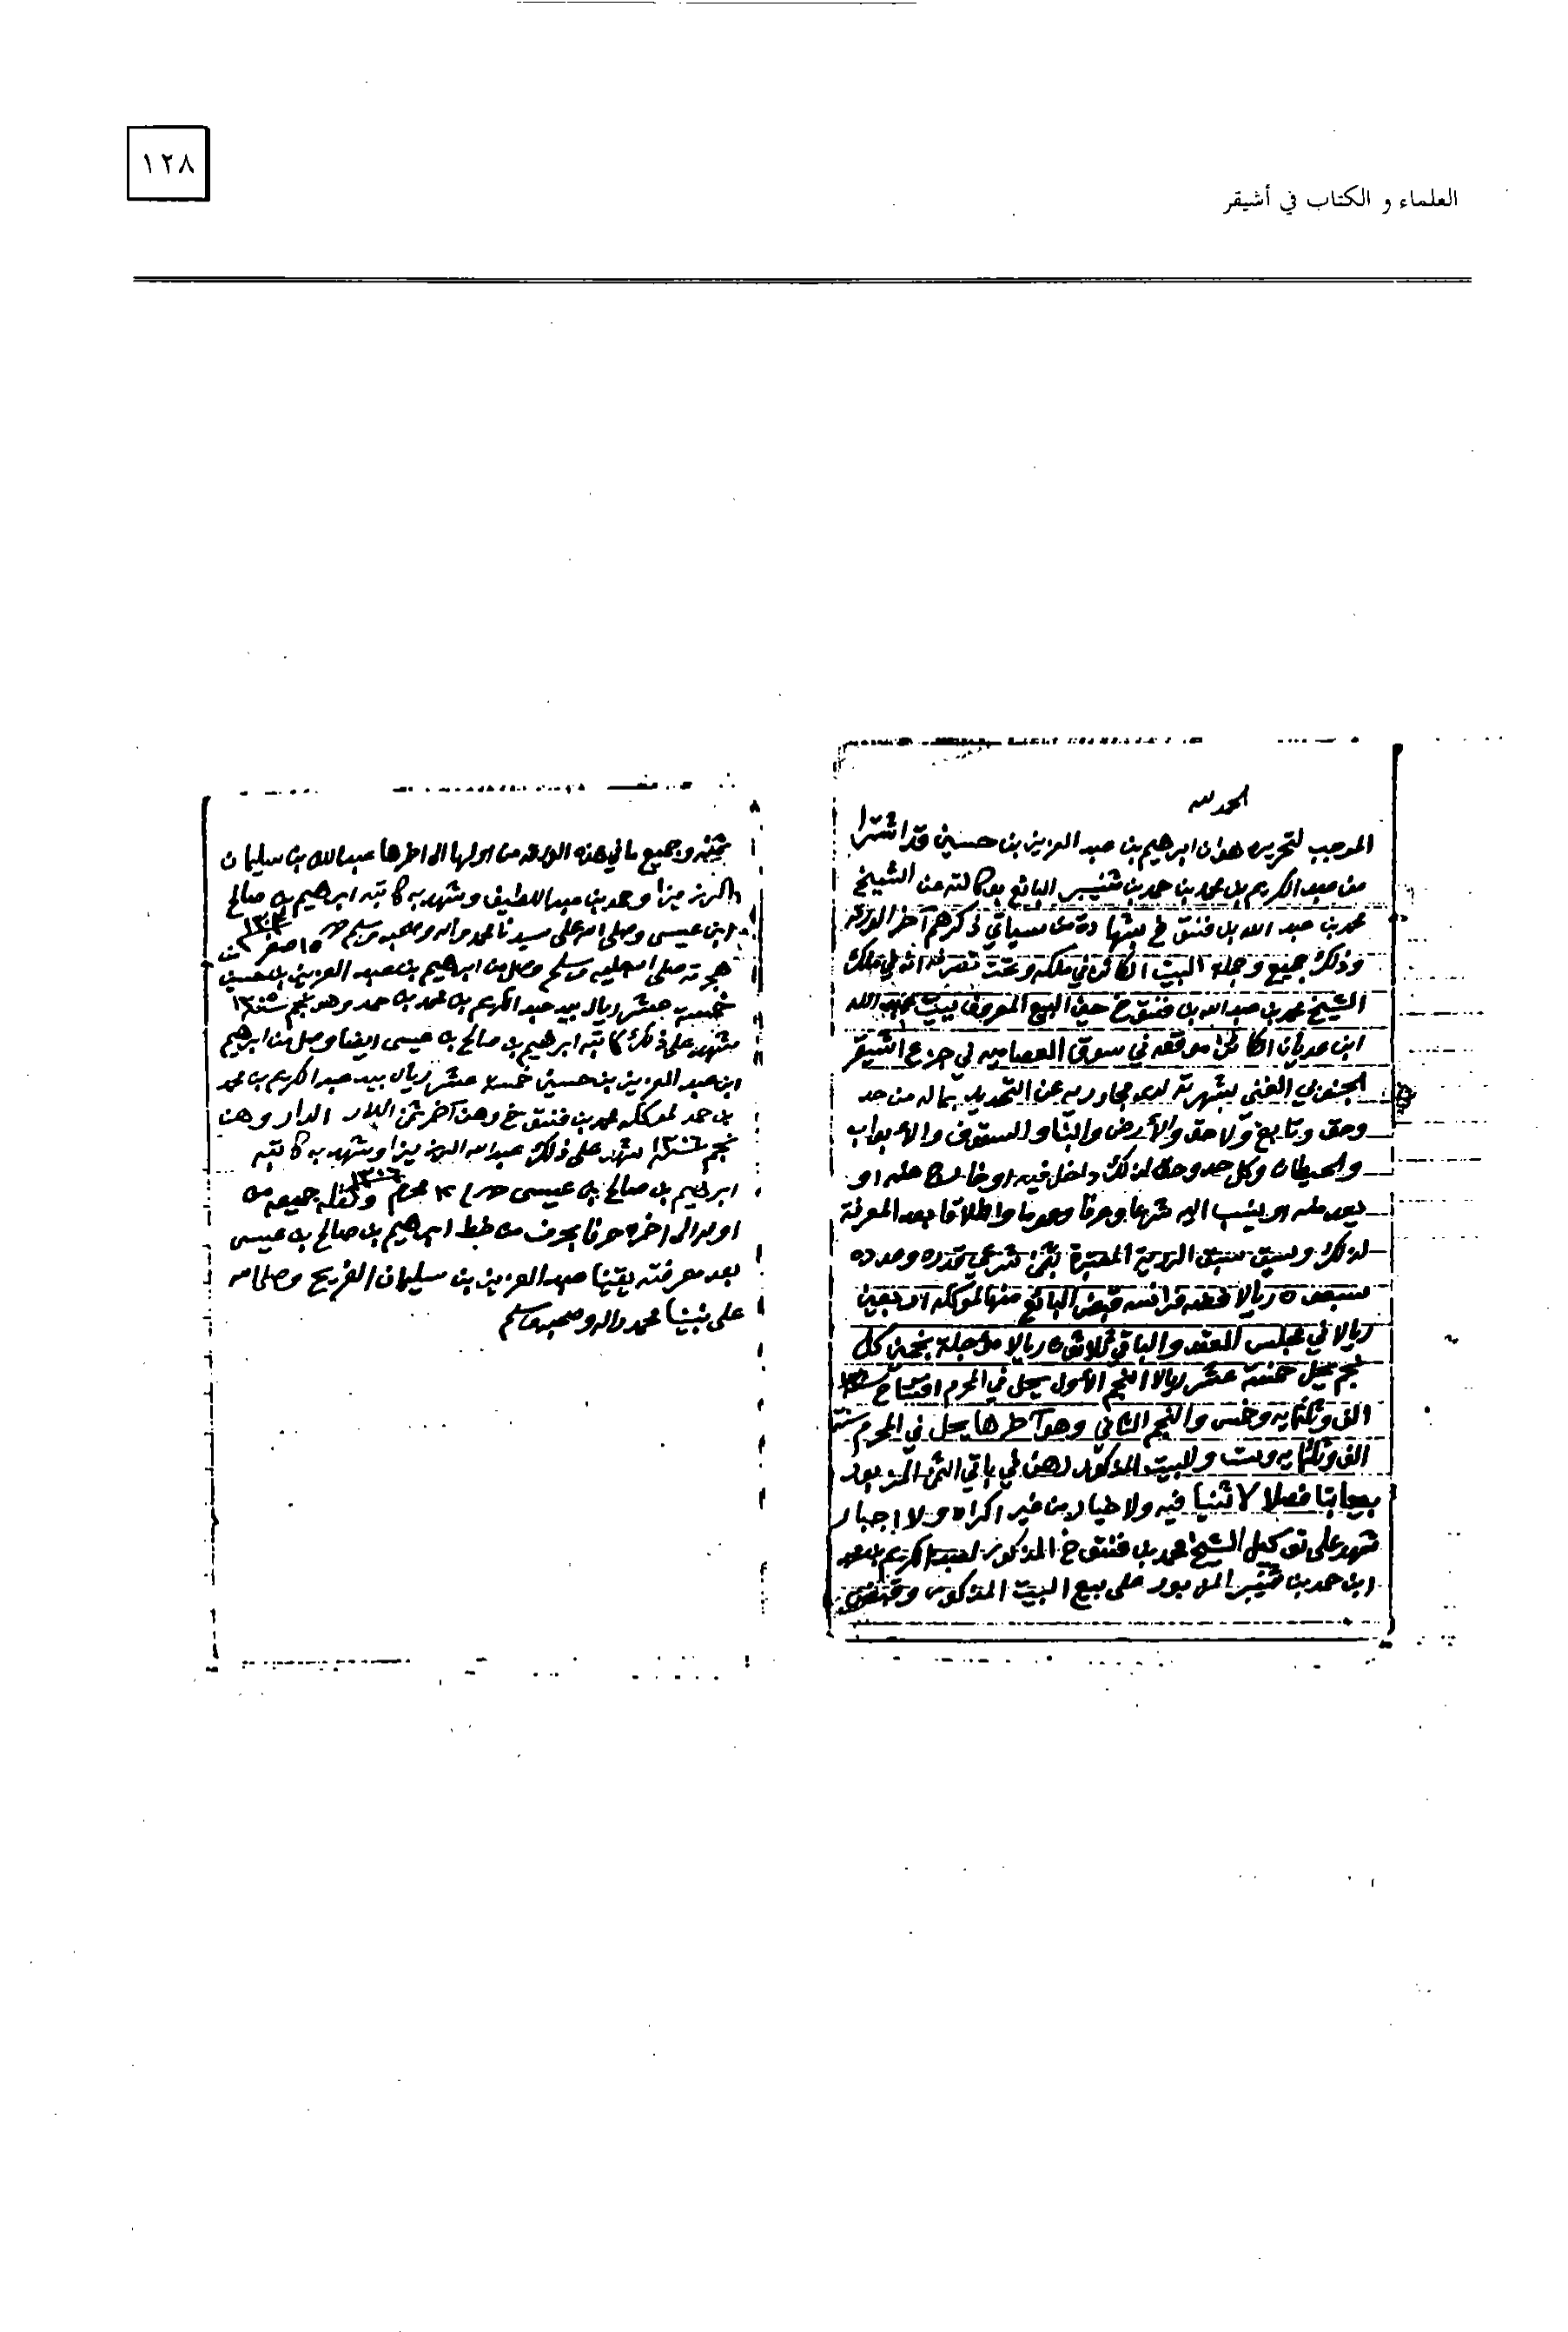 ١٢٨
العلماء و الكتاب في أشيقر
الحمد لله
الموجب لتحريره هو ان ابرهيم بن عبد العزيز بن حسين قد اشترا
من عبد الكريم بن محمد بن حمد بن شنيبر البائع بوكالته من الشيخ
محمد بن عبد الله بن فنتوخ بشهادة من سياتي ذكرهم آخر الورقة
وذلك جميع وجملة البيت الكائن في ملكه وتحت تصرفه الى ملك
الشيخ محمد بن عبد الله بن فنتوخ حين البيع المعروف ببيت عبد الله
ابن عدوان الكائن موقعه في سوق العصاميه في جزع اشيقر
الجنوبي الغني بشهرته لدى مجاوريه عن التحديد بماله من حد
وحق وتابع ولاحق والأرض والبنا والسقوف والأبواب
والحيطان وكل حد وحق لذلك داخل فيه او خارج عنه او
يعد منه او ينسب اليه شرعا وعرفا وعموما واطلاقا بعد المعرفة
لذلك وسبق الروية المعتبرة بثمن شرعي قدره وعدده
سبعون ريالا فضه فرانسه قبض البائع منها لموكله اربعين
ريالا في مجلس العقد والباقي ثلاثون ريالا مؤجلة بنجمين كل
نجم يحل خمسة عشر ريالا النجم الأول يحل في المحرم افتتاح
الف وثلثمايه وخمس والنجم الثاني وهو آخرها يحل في المحرم سنة
الف وثلثمايه وست والبيت المذكور رهن في باقي الثمن المزبور
بيعا بتا فصلا لا ثنيا فيه ولا خيار من غير اكراه ولا اجبار
شهد على توكيل الشيخ محمد بن فنتوخ المذكور لعبد الكريم بن محمد
ابن حمد بن شنيبر المزبور على بيع البيت المذكور وقبض
ثمنه وجميع ما في هذه الورقه من اولها الى اخرها عبدالله بن سليمان
وحمد بن عبد اللطيف وشهد به كاتبه ابرهيم بن صالح
ابن عيسى وصلى الله على سيدنا محمد واله وصحبه وسلم ١٥ صفر
هجرته صلى الله عليه وسلم وصل من ابرهيم بن عبد العزيز بن حسين
خمسة عشر ريال بيد عبد الكريم بن محمد بن حمد وهو نجم
شهد على ذلك كاتبه ابرهيم بن صالح بن عيسى ايضا وصل من ابرهيم
ابن عبد العزيز بن حسين خمسة عشر ريال بيد عبد الكريم بن محمد
بن حمد لموكله محمد بن فنتوخ وهن آخر ثمن الدار وهن
نجم ١٣٠٦ شهد على ذلك عبد الله وشهد به كاتبه
ابرهيم بن صالح بن عيسى محرم ١٣٠٦ ونقله جميعه من
اوله الى اخره حرفا بحرف من خط ابرهيم بن صالح بن عيسى
بعد معرفته يقينا عبد العزيز بن سليمان الفريح وصلى الله
على نبينا محمد واله وصحبه وسلم